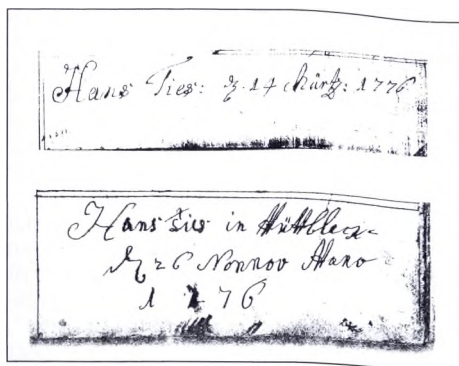 Hans Ties: 14 Märtz: 1776
Hans Ties in Hüttbleck
26 Nonnov Anano
1776